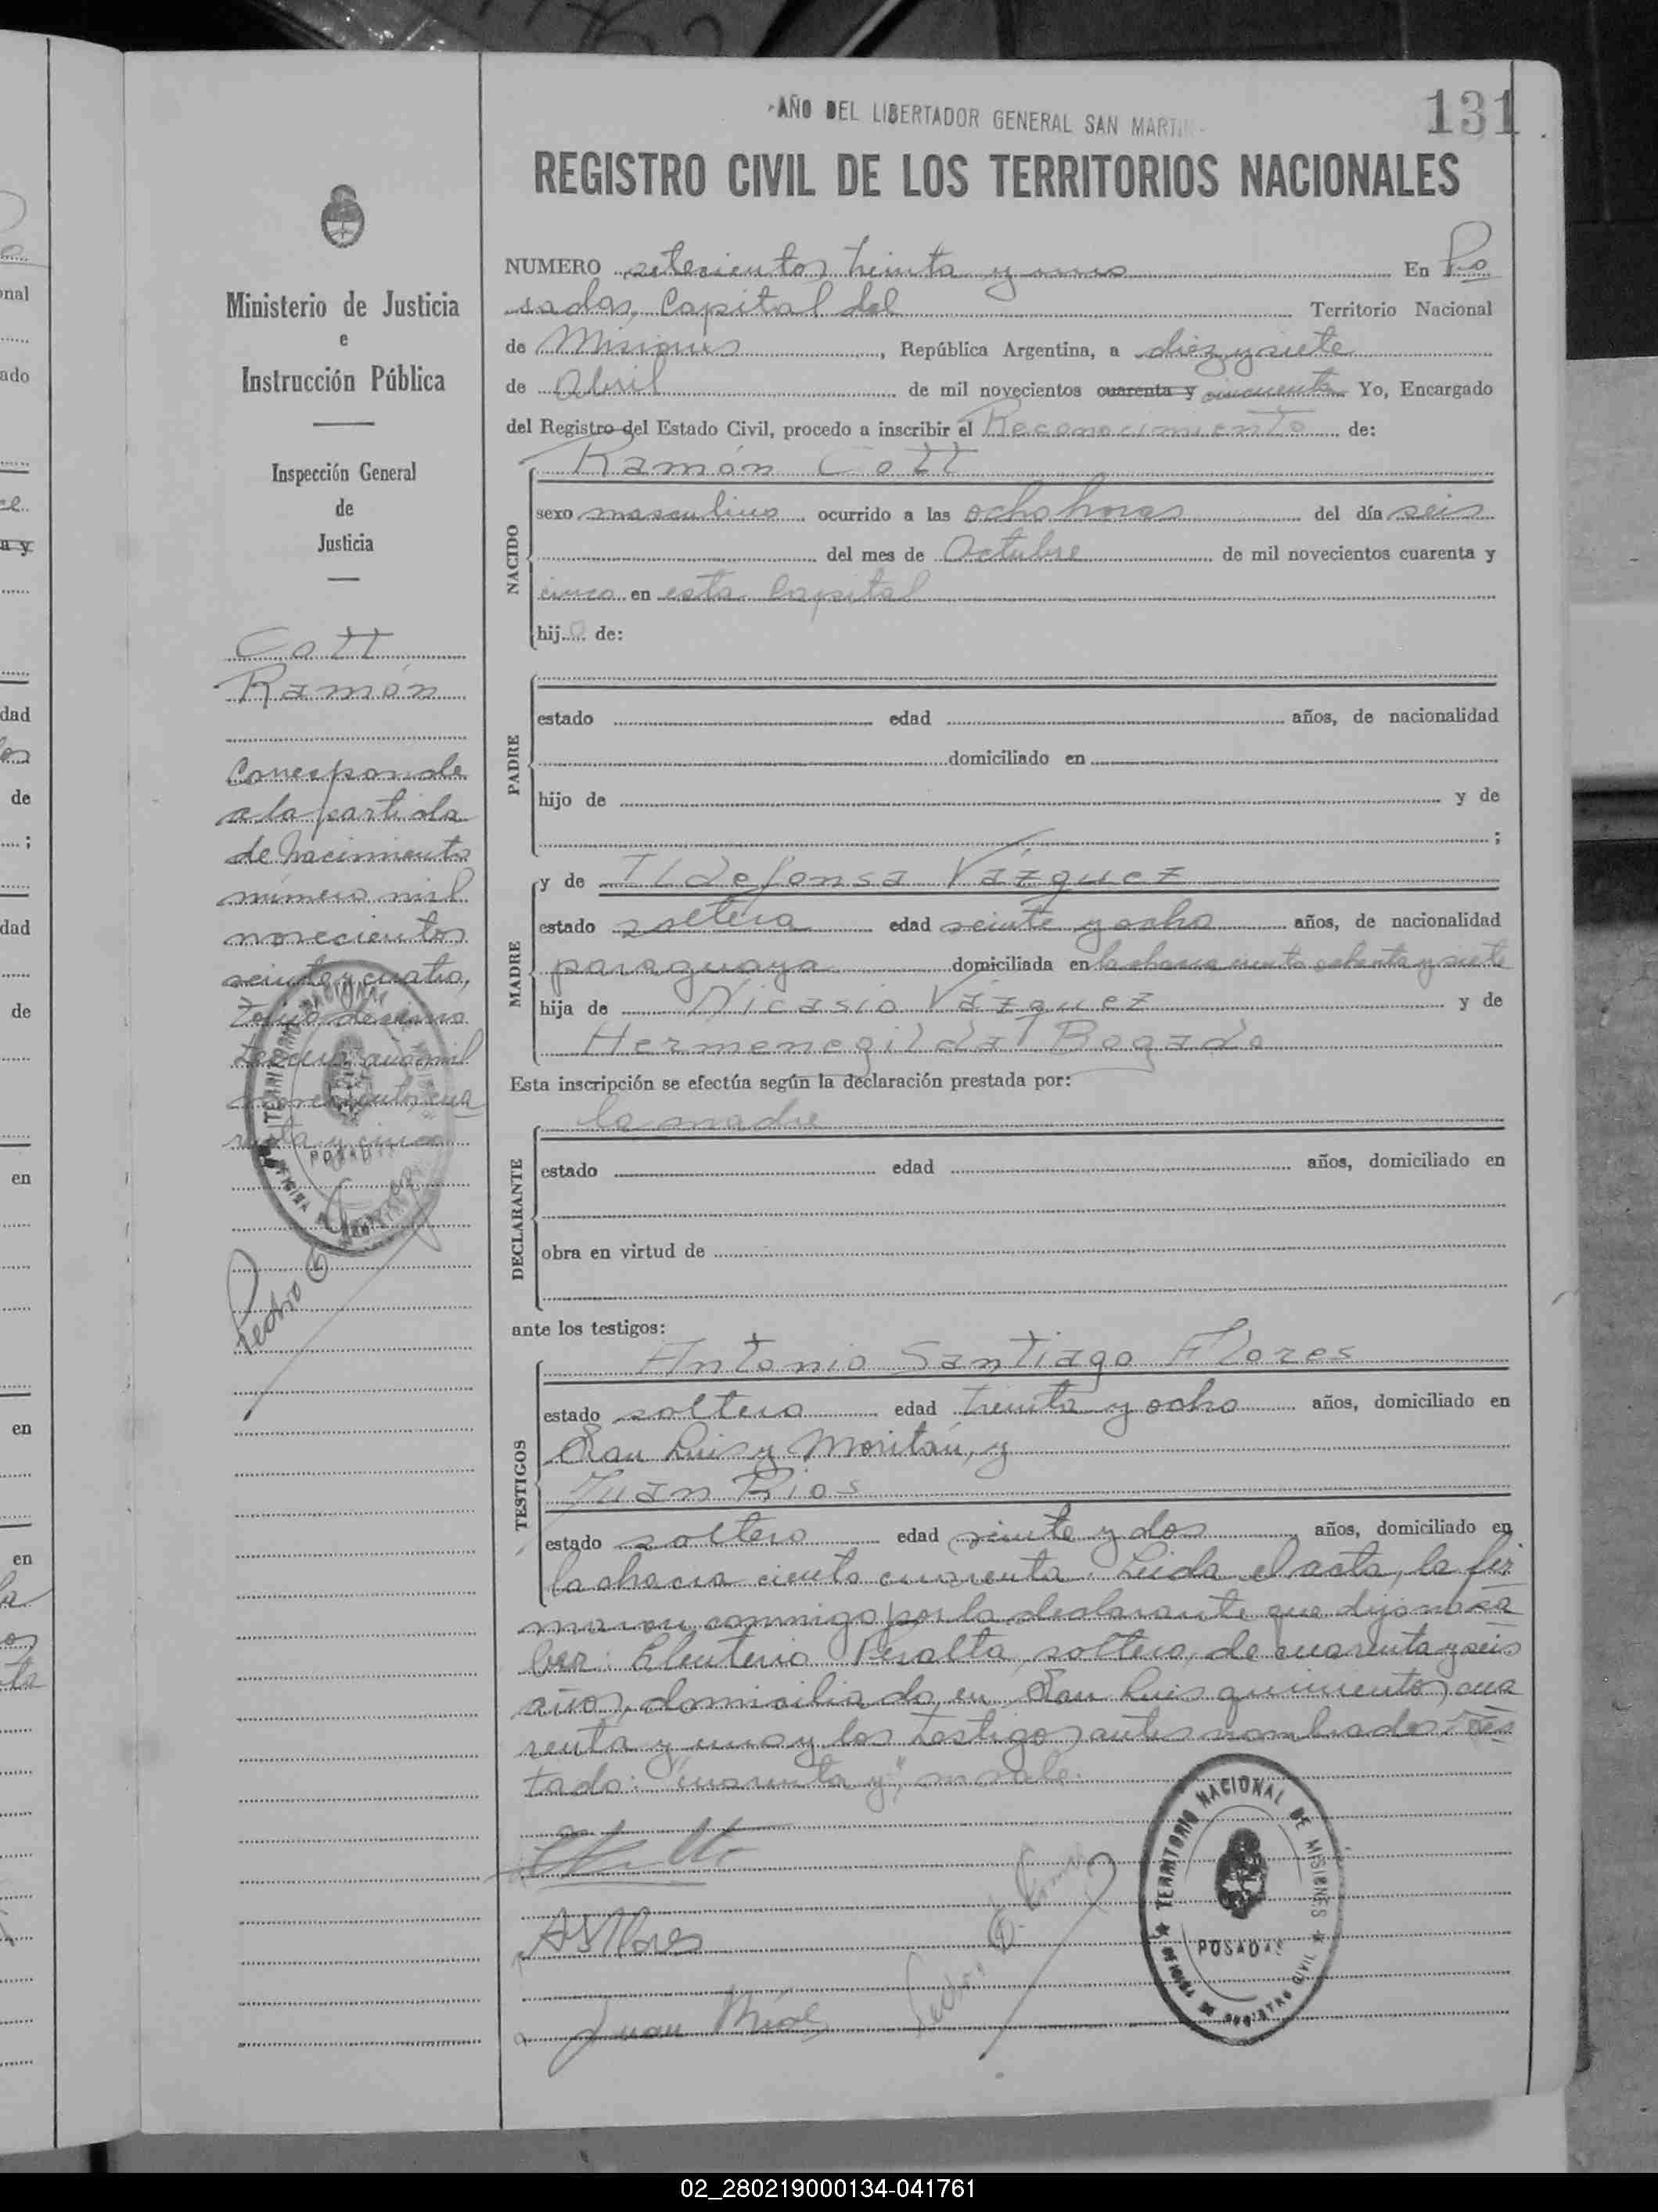 "AÑO DEL LIBERTADOR GENERAL SAN MARTIN"
131
REGISTRO CIVIL DE LOS TERRITORIOS NACIONALES
Ministerio de Justicia
e
Instrucción Pública
Inspección General
de
Justicia
Cott
Ramón
Corresponde
a la partida
de nacimiento
número mil
novecientos
veinte y cuatro,
año mil
novecientos cua
renta y cinco
NUMERO setecientos treinta y uno En Po
sadas, Capital del Territorio Nacional
de Misiones, República Argentina, a diez y siete
de Abril de mil novecientos cuarenta y cincuenta Yo, Encargado
del Registro del Estado Civil, procedo a inscribir el Reconocimiento de:
Ramón Cott
NACIDO
sexo masculino ocurrido a las ocho horas del día seis
del mes de Octubre de mil novecientos cuarenta y
cinco en esta Capital
hijo de:
PADRE
estado edad años, de nacionalidad
domiciliado en
hijo de y de
;
MADRE
y de Ildefonsa Vázquez
estado soltera edad veinte y ocho años, de nacionalidad
paraguaya domiciliada en la chacra ciento ochenta y siete
hija de Nicasio Vázquez y de
Hermenegilda Bogado
Esta inscripción se efectúa según la declaración prestada por:
la madre
DECLARANTE
estado edad años, domiciliado en
obra en virtud de
ante los testigos:
TESTIGOS
Antonio Santiago Flores
estado soltero edad treinta y ocho años, domiciliado en
San Luis y Moritán, y
Juan Rios
estado soltero edad veinte y dos años, domiciliado en
la chacra ciento cuarenta. Leida el acta, la fir
maron conmigo por la declarante que dijo no sa
ber: Eleuterio Peralta, soltero, de cuarenta y seis
años, domiciliado en San Luis quinientos cua
renta y uno y los testigos antes nombrados. Tes
tado: "cuarenta y", no vale.
A S Flores
Juan Rios
Pedro G.
TERRITORIO NACIONAL DE MISIONES
POSADAS
OFICINA DE REGISTRO CIVIL
02_280219000134-041761